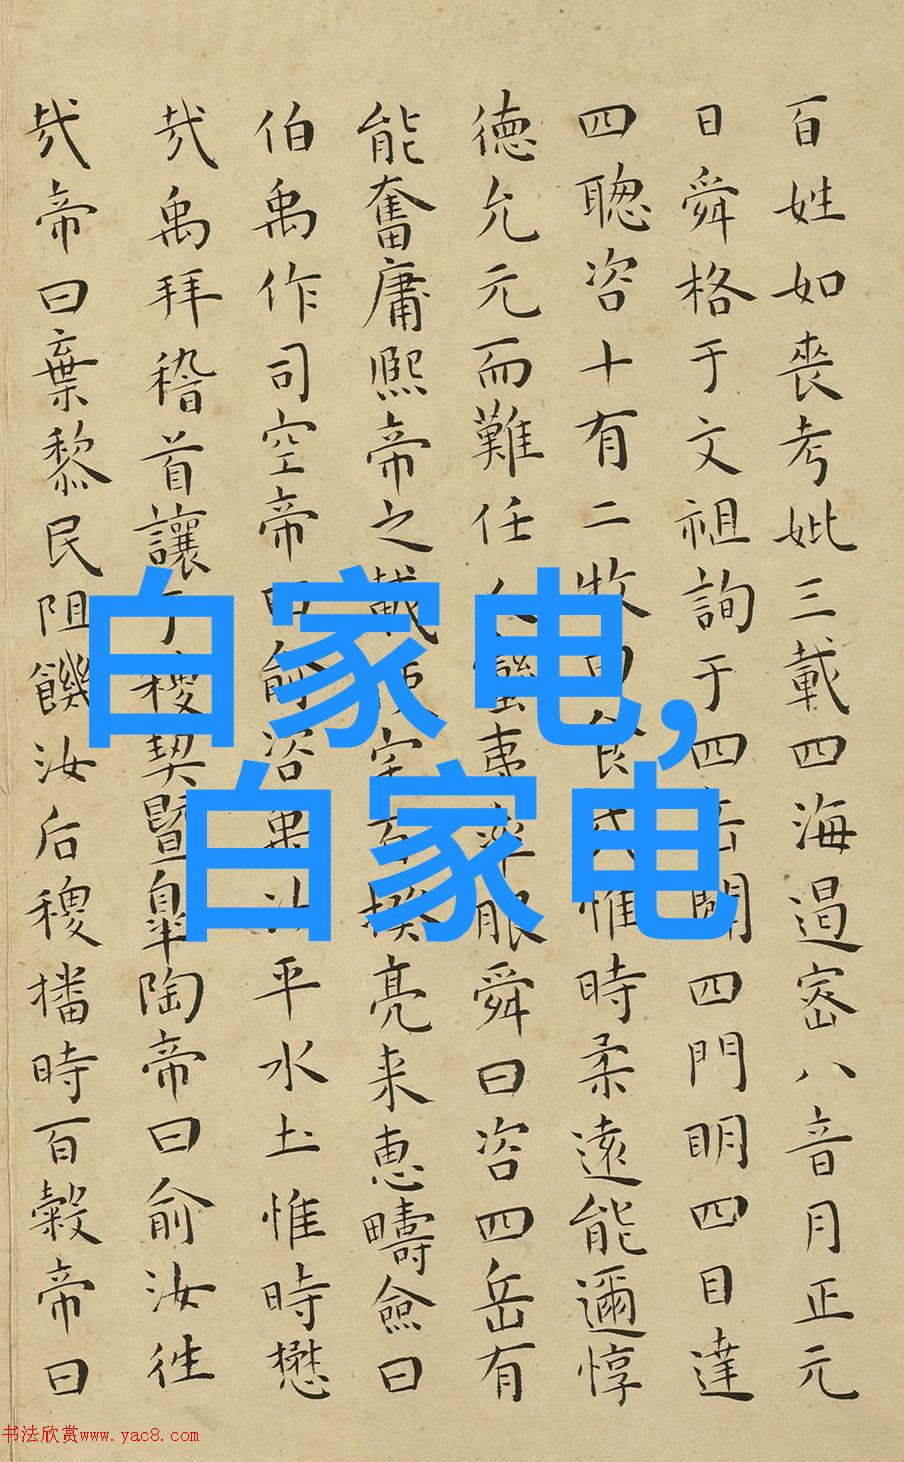 百姓如喪考妣三載四海遏密八音月正元
日舜格于文祖詢于四岳闢四門明四目達
四聰咨十有二牧曰食哉惟時柔遠能邇惇
德允元而難任人蠻夷率服舜曰咨四岳有
能奮庸熙帝之載使宅百揆亮来惠疇僉曰
伯禹作司空帝曰俞咨禹汝平水土惟時懋
哉禹拜稽首讓于稷契暨皐陶帝曰俞汝往
哉帝曰棄黎民阻饑汝后稷播時百穀帝曰
白家电,
白家电
书法欣赏www.yac8.com